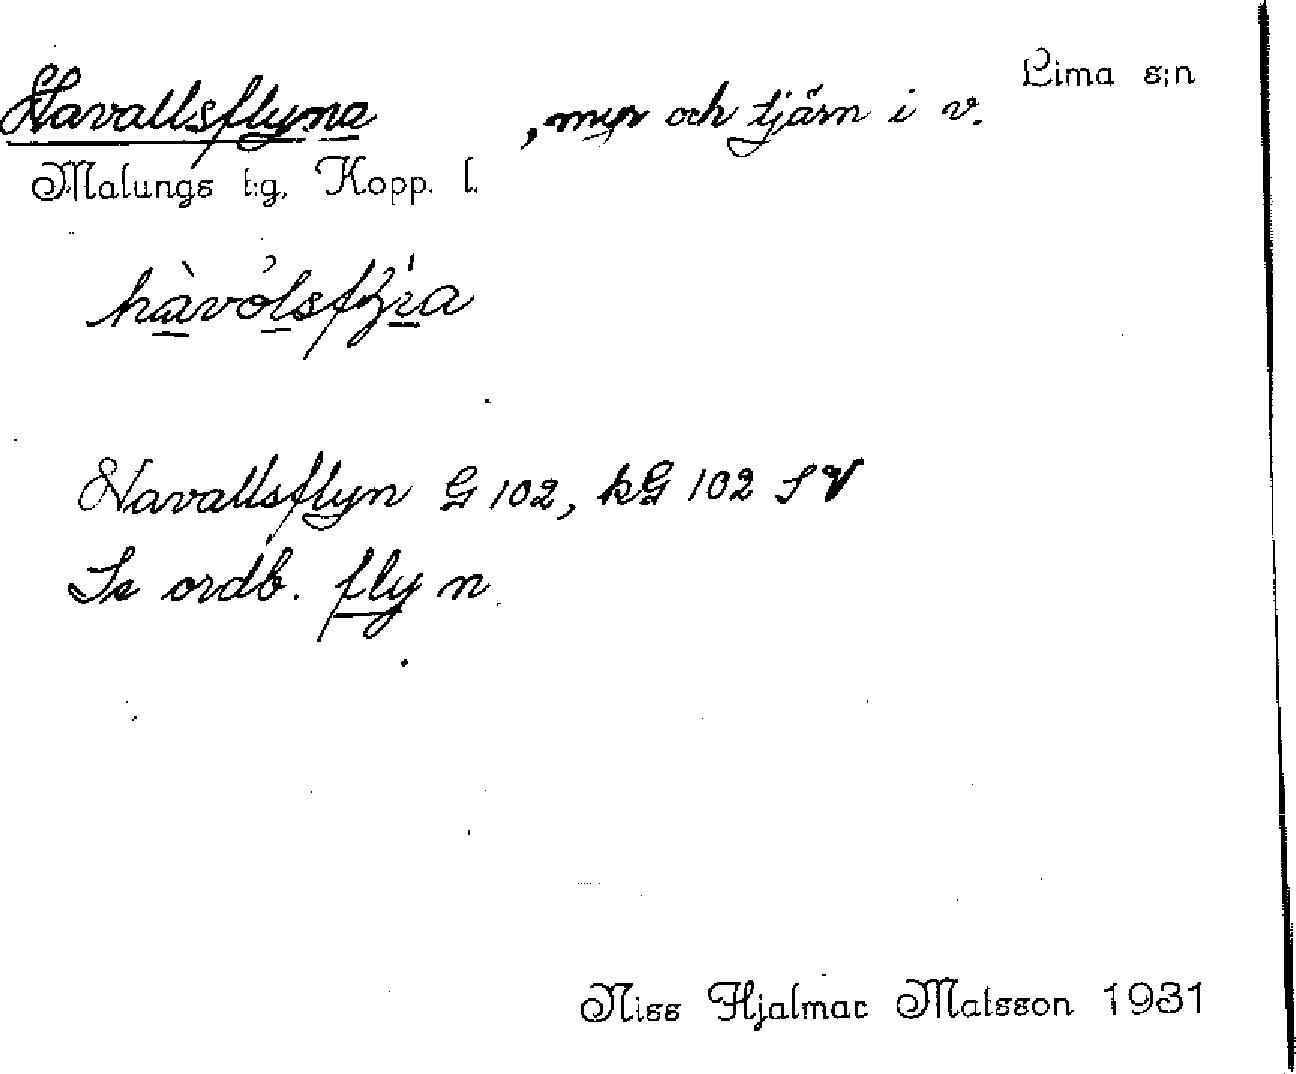 Havallsflyna , myr och tjärn i v. Lima s:n
Malungs t:g, Kopp. l.
hàvòlsfljia
Havallsflyn G 102, kG 102 SV
Se ordb. fly n
Niss Hjalmar Matsson 1931